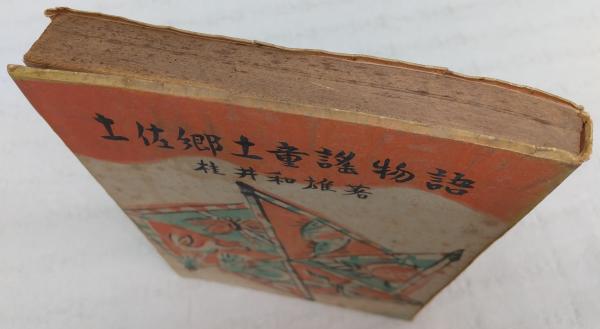 土佐郷土童謠物語
桂井和雄著